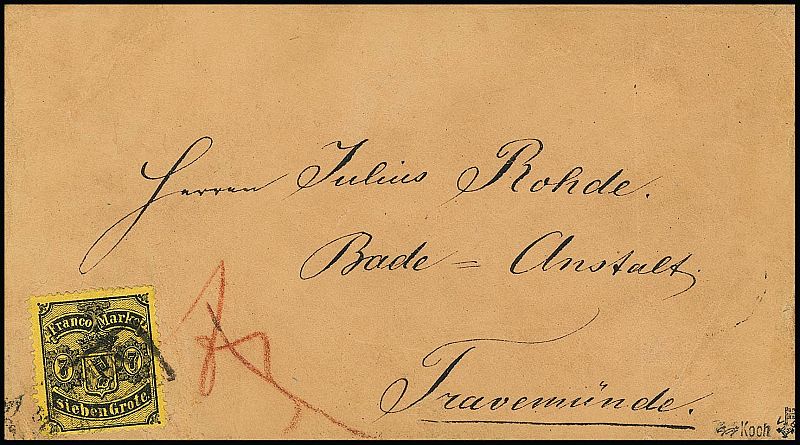 Herren Julius Rohde.
Bade = Anstalt.
Travemünde.
Franco Marke.
7 7
Sieben Grote.
Koch